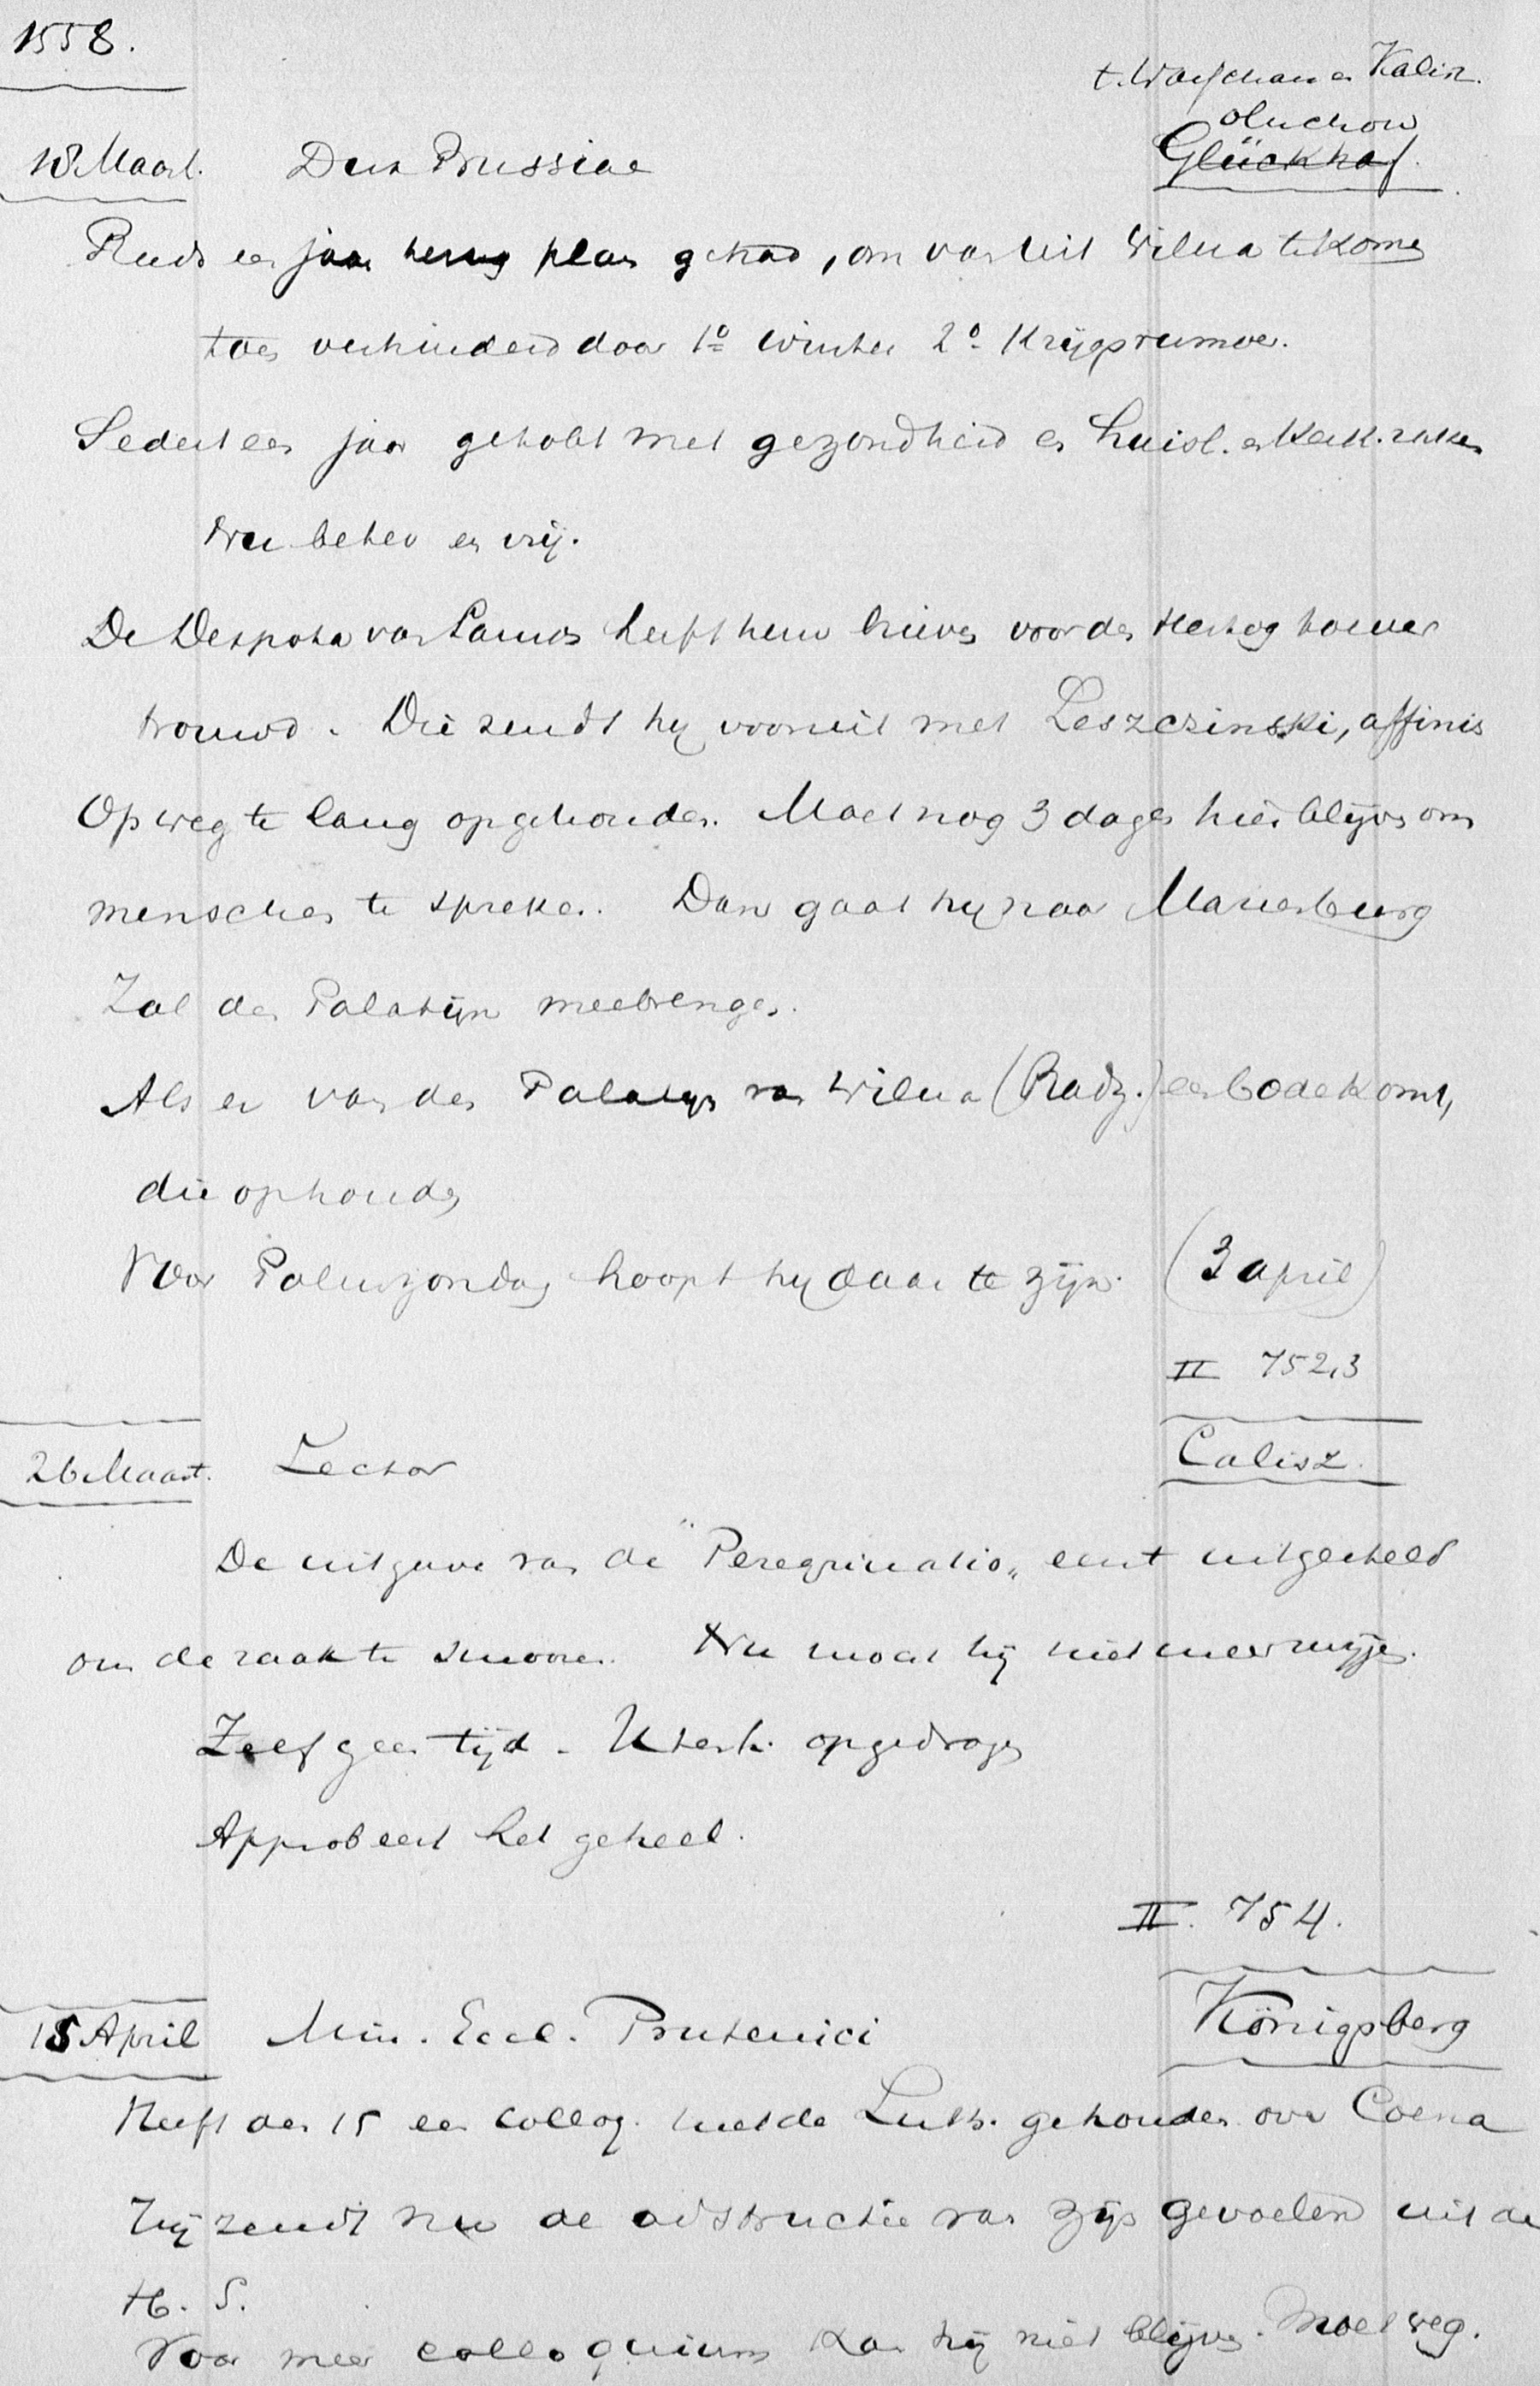 1558.
t. Warschau en Kalisz.
oluchow
18 Maart. Dux Prussiae Glückhof.
Reeds een jaar terug plan gehad, om van uit Wilna te komen
toen verhinderd door 1º winter 2º Krijgsrumoer.
Sedert een jaar getobt met gezondheid en huisl. en Kerk. zaken
Nu beter en vrij.
De Despota van Samos heeft hem brieven voor den Hertog toever
trouwd. Die zendt hij vooruit met Leszczinski, affinis
Op weg te lang opgehouden. Moet nog 3 dagen hier blijven om
menschen te spreken. Dan gaat hij naar Marienburg
Zal den Palatijn meebrengen.
Als er van den Palatijn van Wilna (Radz.) een bode komt,
die ophouden
Voor Palmzondag hoopt hij daar te zijn. (3 april)
II 752,3
26 Maart. Lector Calisz.
De uitgave van de "Peregrinatio" eerst uitgesteld
om de zaak te smoren. Nu moet hij niet meer zwijgen.
Zelf geen tijd. Utenh. opgedragen
Approbeert het geheel.
II. 754.
15 April Min. Eccl. Prutenici Königsberg
Heeft den 15 een colloq. met de Luth. gehouden over Coena
Hij zendt nu de adstructie van zijn gevoelen uit de
H. S.
Voor meer colloquiums kan hij niet blijven. Moet weg.